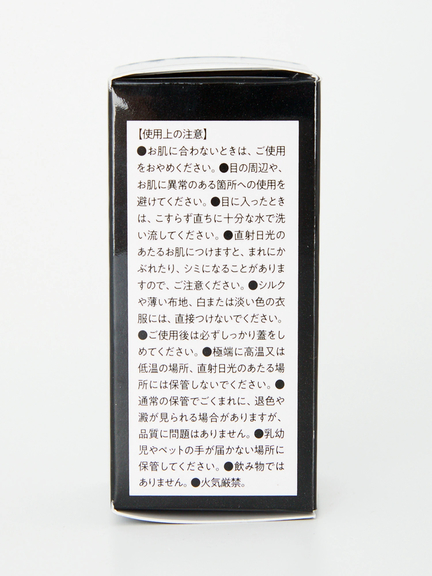 【使用上の注意】
●お肌に合わないときは、ご使用
をおやめください。●目の周辺や、
お肌に異常のある箇所への使用を
避けてください。●目に入ったとき
は、こすらず直ちに十分な水で洗
い流してください。●直射日光の
あたるお肌につけますと、まれにか
ぶれたり、シミになることがありま
すので、ご注意ください。●シルク
や薄い布地、白または淡い色の衣
服には、直接つけないでください。
●ご使用後は必ずしっかり蓋をし
めてください。●極端に高温又は
低温の場所、直射日光のあたる場
所には保管しないでください。●
通常の保管でごくまれに、退色や
澱が見られる場合がありますが、
品質に問題はありません。●乳幼
児やペットの手が届かない場所に
保管してください。●飲み物では
ありません。●火気厳禁。